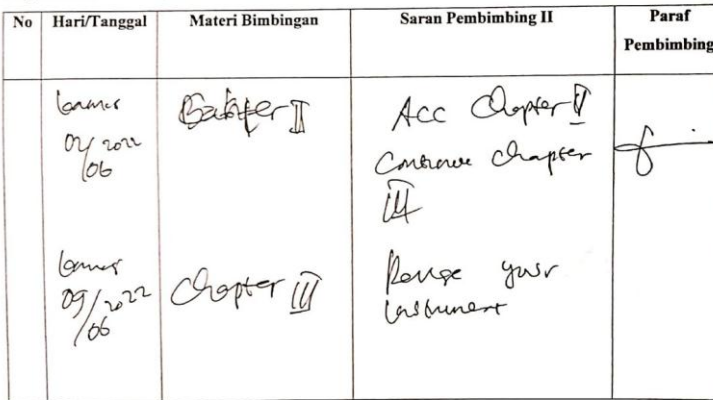 No Hari/Tanggal Materi Bimbingan Saran Pembimbing II Paraf
Pembimbing
kamis
02/2022
/06
Chapter II
Acc Chapter II
Continue chapter
III
kamis
09/2022
/06
Chapter III
Revise your
instrument